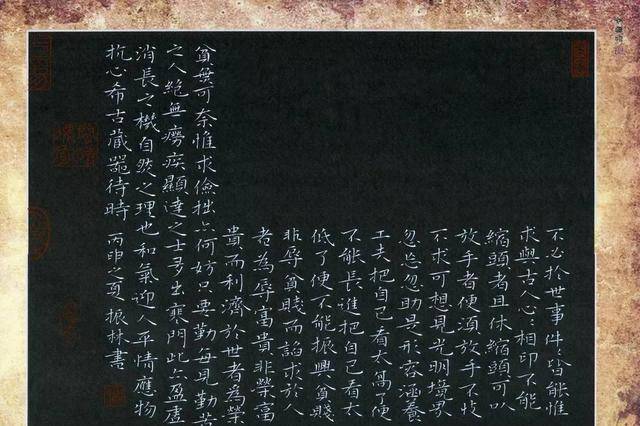 不必於世事件〻皆能惟
求與古人心〻相印不能
縮頭者且休縮頭可以
放手者便須放手不忮
不求可想見光明境界
忽忘忽助是形容涵養
工夫把自己看太高了便
不能長進把自己看太
低了便不能振興貧賤
非辱貧賤而諂求於人
者為辱富貴非榮富
貴而利濟於世者為榮
貧無可奈惟求儉拙亦何妨只要勤毋見勤苦
之人絕無癆疾顯達之士多出寒門此亦盈虛
消長之機自然之理也和氣迎人平情應物
抗心希古藏器待時 丙申之夏振林書